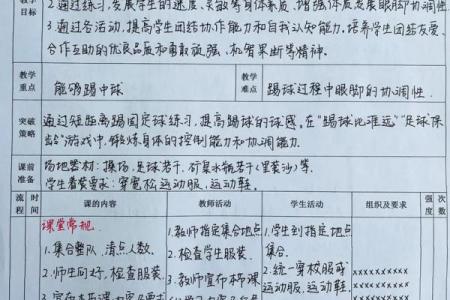 教学目标
2.通过练习，发展学生的速度、灵敏等身体素质，增强体质发展眼脚协调性
3.通过各活动，提高学生团结协作能力和自我认知能力，培养学生团结友爱、
合作互助的优良品质和勇敢顽强、机智果断等精神。
教学重点 能够踢中球 教学难点 踢球过程中眼脚的协调性.
突破策略
通过短距离踢固定球练习，提高踢球的球感。在“踢球比难远”“足球保
龄”游戏中，锻炼身体的控制能力和协调能力。
课前准备
场地器材：操场、足球若干、矿泉水瓶若干(里装沙)等.
学生着装要求：穿宽松运动服、运动鞋。
流程 时间 课的内容 教师活动 学生活动 组织及要求 强度 次数
课堂常规.
1.集合整队，清点人数.
2.师生问好，检查服装.
3.宣布本课内容及要求
1.教师指定集合地点
2.检查学生服装.
3.教师宣布本课
1.学生到指定地点
集合.
2.统一穿校服或
运动服、运动鞋.
xxxxxxxxxx
xxxxxxxxxx
xxxxxxxxxx